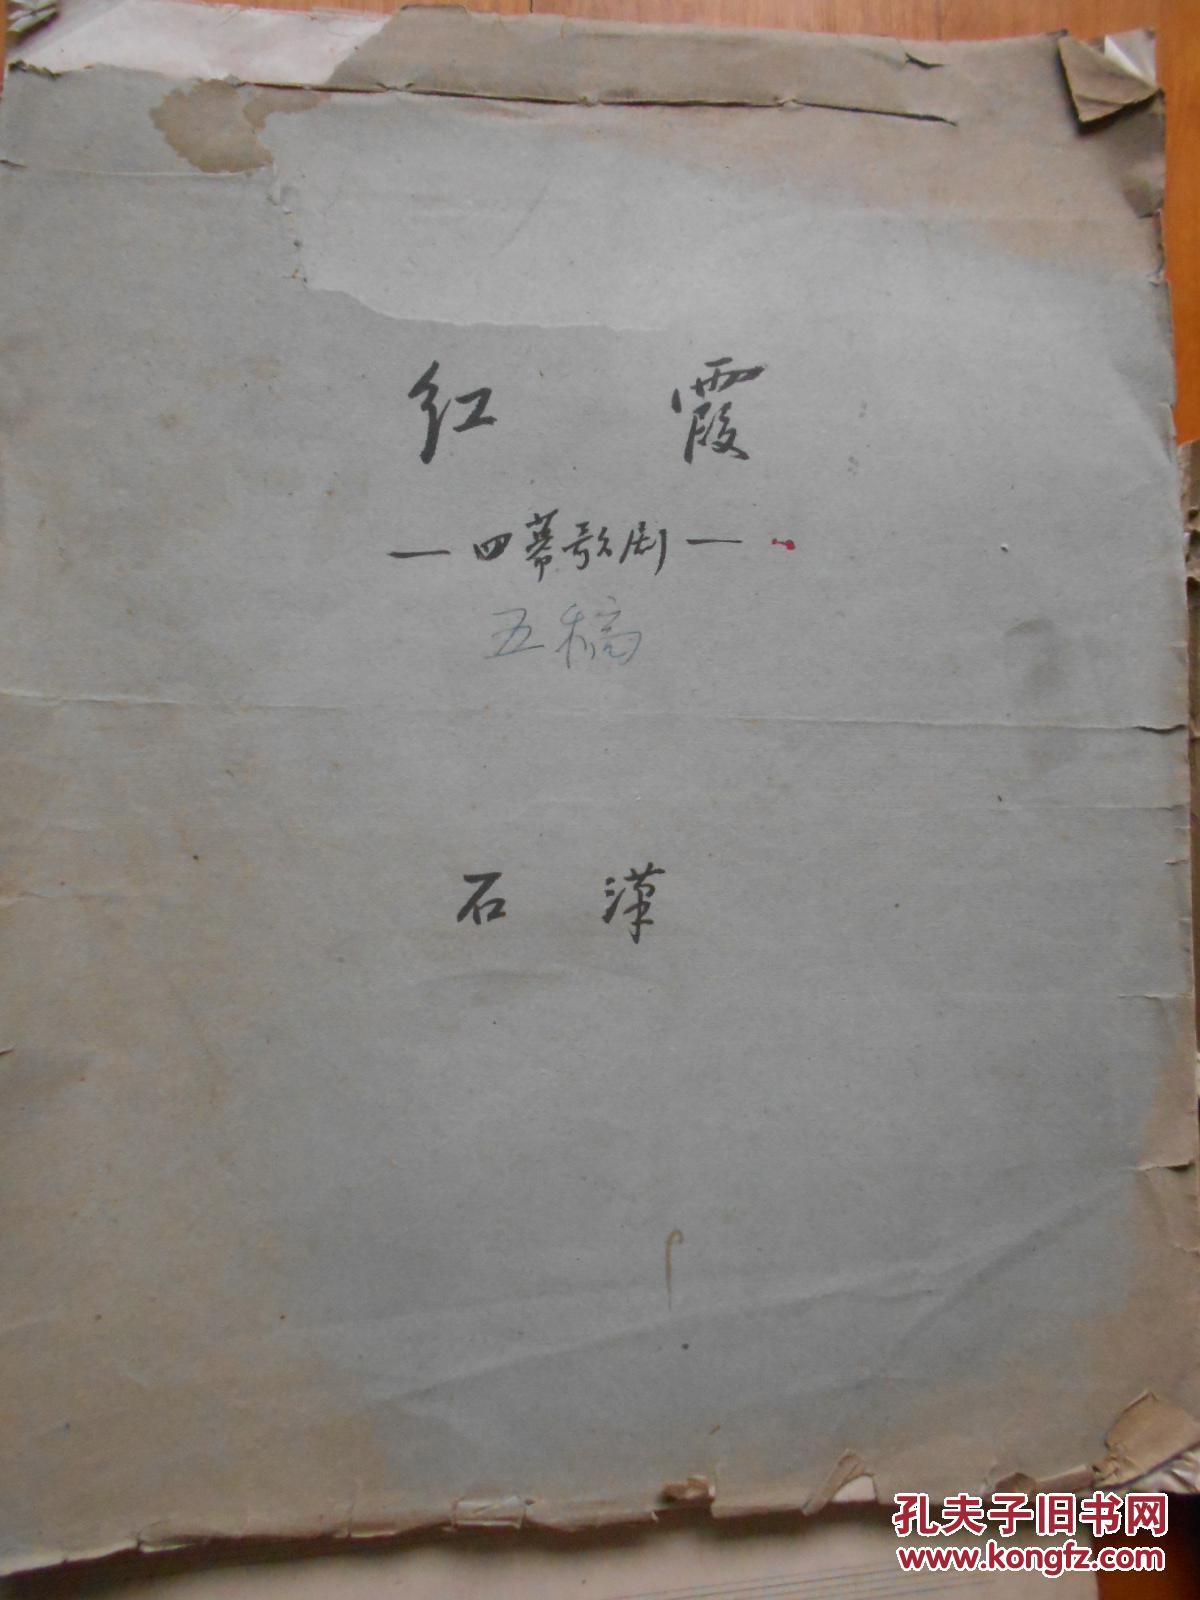 红霞
—四幕歌剧—
五稿
石汉
孔夫子旧书网
www.kongfz.com